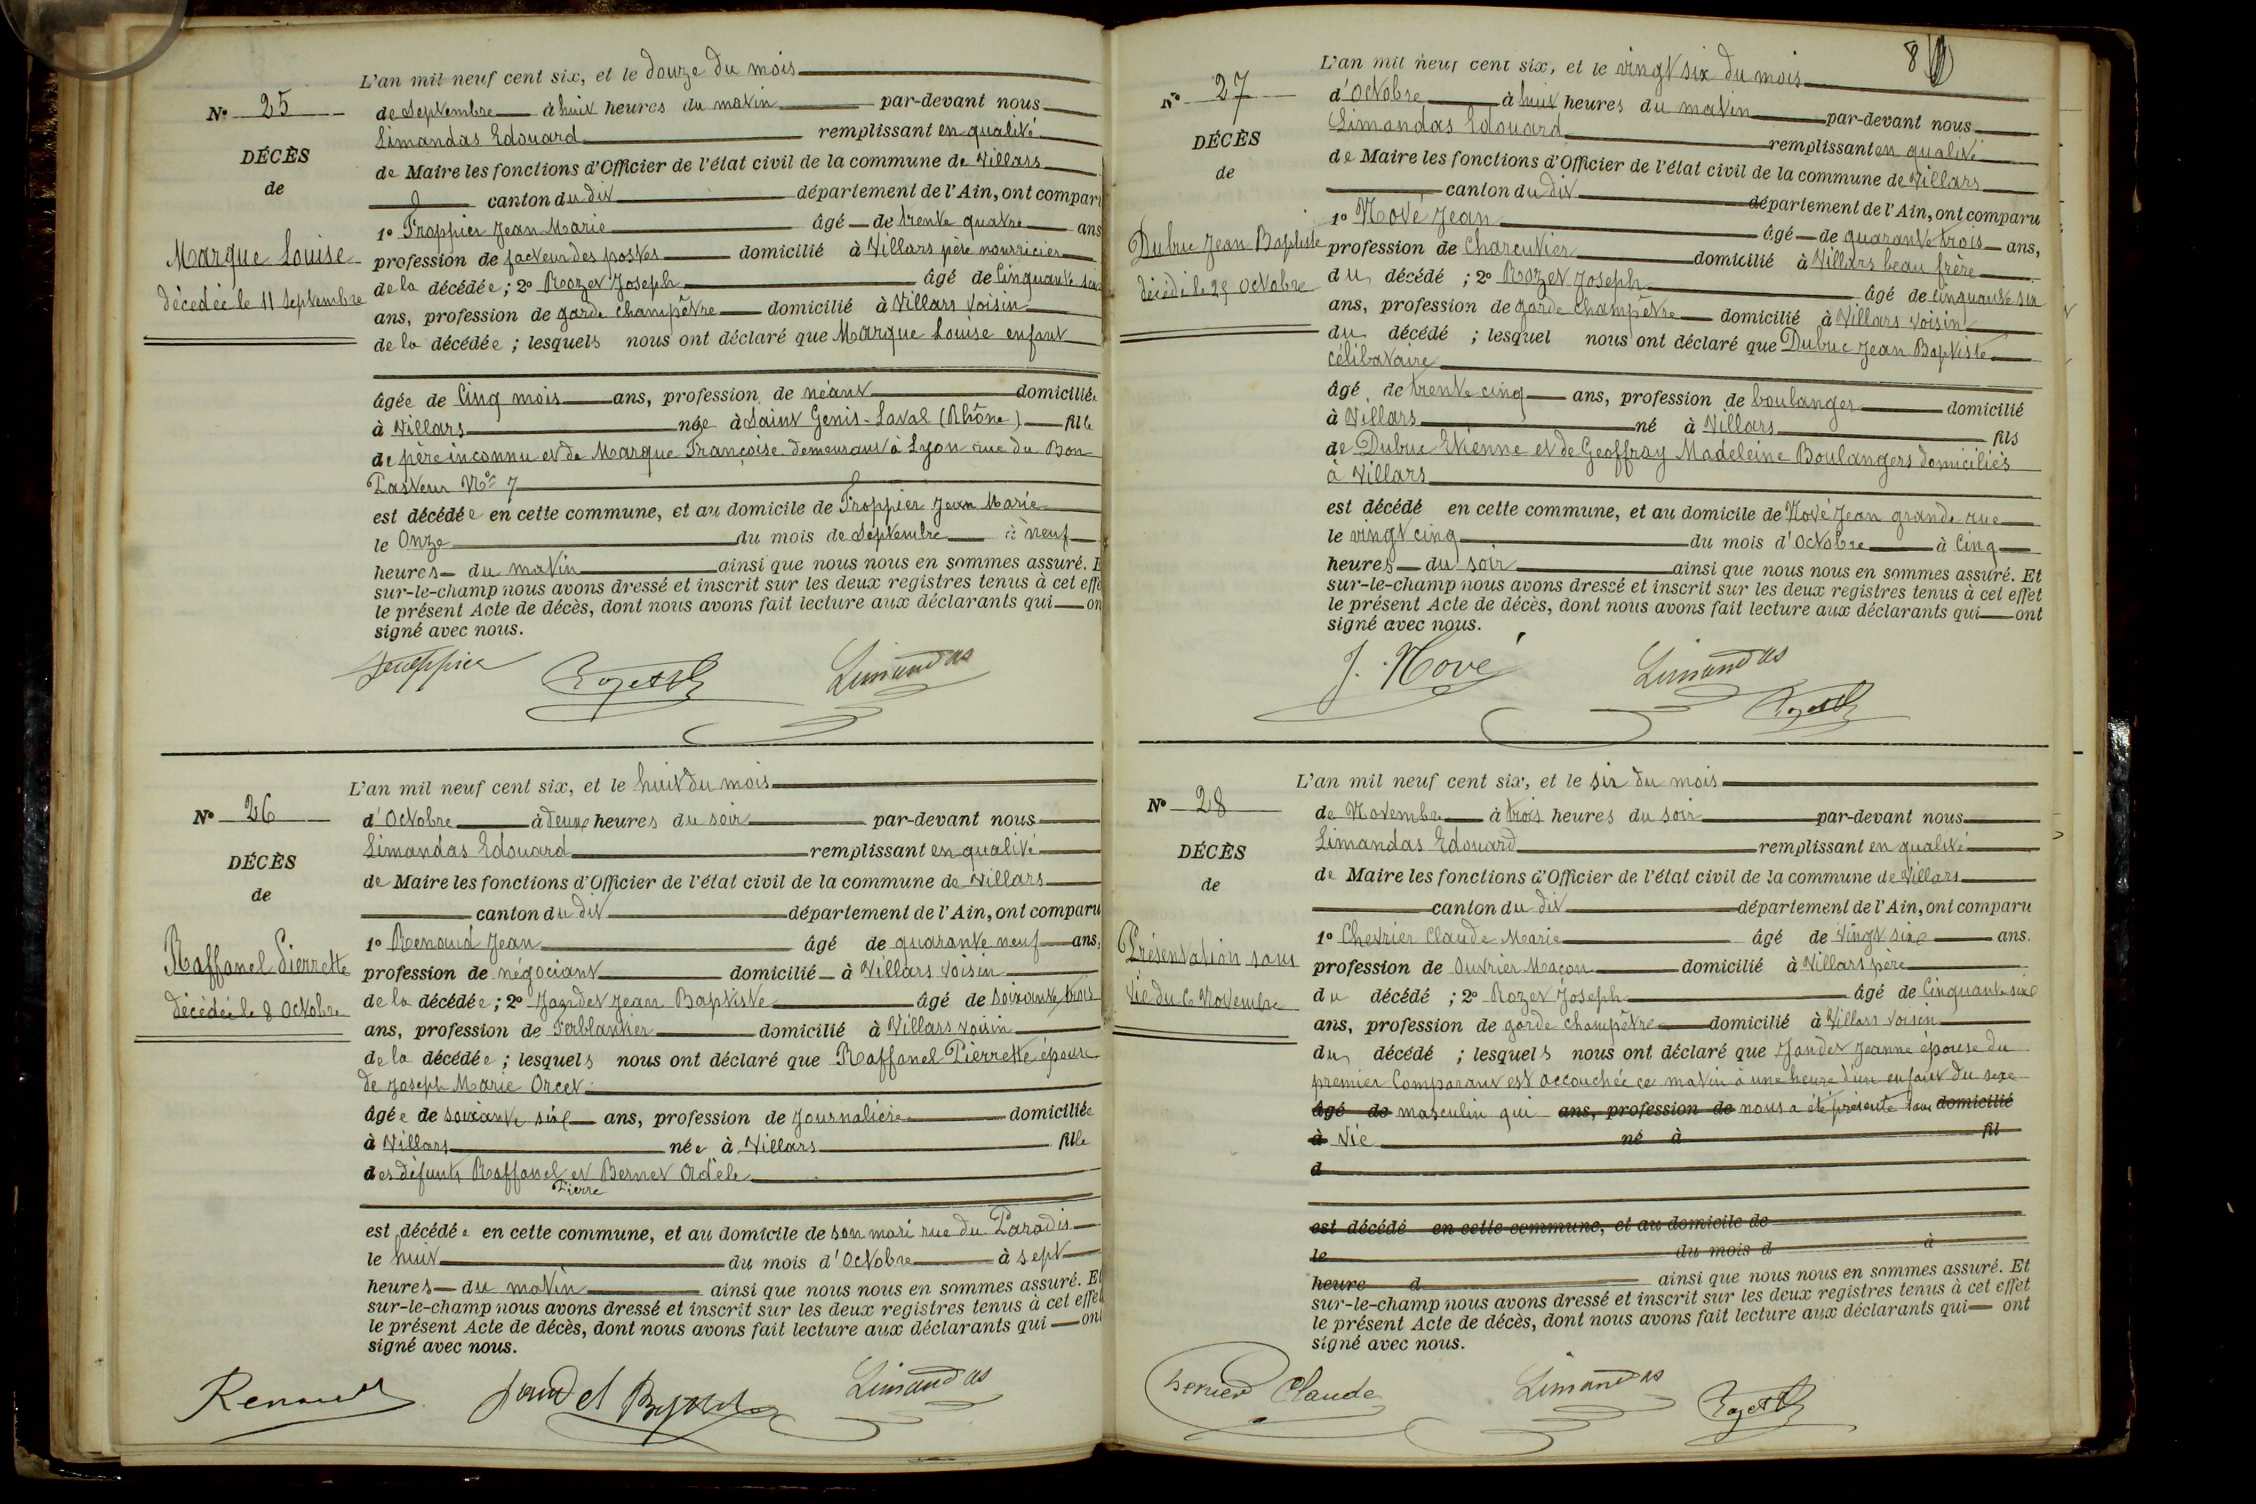 L'an mil neuf cent six, et le douze du mois
N° 25
de Septembre à huit heures du matin par-devant nous
Limandas Edouard remplissant en qualité
DÉCÈS
de Maire les fonctions d'Officier de l'état civil de la commune de Villars
de
canton du dit département de l'Ain, ont comparu
1° Froppier Jean Marie âgé de trente quatre ans
Marque Louise
profession de facteur des postes domicilié à Villars père nourricier
décédée le 11 Septembre
de la décédée ; 2° Rozet Joseph âgé de Cinquante six
ans, profession de garde champêtre domicilié à Villars voisin
de la décédée ; lesquels nous ont déclaré que Marque Louise enfant
âgée de Cinq mois ans, profession de néant domiciliée
à Villars née à Saint Genis-Laval (Rhône) fille
de père inconnu et de Marque Françoise demeurant à Lyon rue du Bon
Pasteur N° 7
est décédée en cette commune, et au domicile de Froppier Jean Marie
le Onze du mois de Septembre à neuf
heures du matin ainsi que nous nous en sommes assuré. E
sur-le-champ nous avons dressé et inscrit sur les deux registres tenus à cet effe
le présent Acte de décès, dont nous avons fait lecture aux déclarants qui on
signé avec nous.
Limandas
L'an mil neuf cent six, et le huit du mois
N° 26
d'Octobre à deux heures du soir par-devant nous
Limandas Edouard remplissant en qualité
DÉCÈS
de Maire les fonctions d'Officier de l'état civil de la commune de Villars
de
canton du dit département de l'Ain, ont comparu
1° Renaud Jean âgé de quarante neuf ans,
Raffanel Pierrette
profession de négociant domicilié à Villars voisin
décédée le 8 Octobre
de la décédée ; 2° Jandet Jean Baptiste âgé de soixante trois
ans, profession de Ferblantier domicilié à Villars voisin
de la décédée ; lesquels nous ont déclaré que Raffanel Pierrette épouse
de Joseph Marie Orcet
âgée de soixante six ans, profession de Journalière domiciliée
à Villars née à Villars fille
des défunts Raffanel et Bernet Adèle
Pierre
est décédée en cette commune, et au domicile de son mari rue du Paradis
le huit du mois d'Octobre à sept
heures du matin ainsi que nous nous en sommes assuré. Et
sur-le-champ nous avons dressé et inscrit sur les deux registres tenus à cet effet
le présent Acte de décès, dont nous avons fait lecture aux déclarants qui ont
signé avec nous.
Renaud Jandet Limandas
8
L'an mil neuf cent six, et le vingt six du mois
N° 27
d'Octobre à huit heures du matin par-devant nous
Limandas Edouard remplissant en qualité
DÉCÈS
de Maire les fonctions d'Officier de l'état civil de la commune de Villars
de
canton du dit département de l'Ain, ont comparu
1° Nové Jean âgé de quarante trois ans,
Dubuc Jean Baptiste
profession de Charcutier domicilié à Villars beau frère
décédé le 25 Octobre
du décédé ; 2° Rozet Joseph âgé de cinquante six
ans, profession de garde Champêtre domicilié à Villars voisin
du décédé ; lesquel nous ont déclaré que Dubuc Jean Baptiste
célibataire
âgé de trente cinq ans, profession de boulanger domicilié
à Villars né à Villars fils
de Dubuc Etienne et de Geoffray Madeleine Boulangers domiciliés
à Villars
est décédé en cette commune, et au domicile de Nové Jean grande rue
le vingt cinq du mois d'Octobre à Cinq
heures du soir ainsi que nous nous en sommes assuré. Et
sur-le-champ nous avons dressé et inscrit sur les deux registres tenus à cet effet
le présent Acte de décès, dont nous avons fait lecture aux déclarants qui ont
signé avec nous.
J. Nové Limandas
L'an mil neuf cent six, et le six du mois
N° 28
de Novembre à trois heures du soir par-devant nous
Limandas Edouard remplissant en qualité
DÉCÈS
de Maire les fonctions d'Officier de l'état civil de la commune de Villars
de
canton du dit département de l'Ain, ont comparu
1° Chevrier Claude Marie âgé de vingt six ans.
Présentation sans
profession de Ouvrier Maçon domicilié à Villars père
vie du 6 Novembre
du décédé ; 2° Rozet Joseph âgé de Cinquante six
ans, profession de garde champêtre domicilié à Villars voisin
du décédé ; lesquels nous ont déclaré que Jandet Jeanne épouse du
premier Comparant est accouchée ce matin à une heure d'un enfant du sexe
âgé de masculin qui ans, profession de nous a été présenté sans domicilié
à vie né à fil
d
est décédé en cette commune, et au domicile de
le du mois d à
heure d ainsi que nous nous en sommes assuré. Et
sur-le-champ nous avons dressé et inscrit sur les deux registres tenus à cet effet
le présent Acte de décès, dont nous avons fait lecture aux déclarants qui ont
signé avec nous.
Claude Limandas